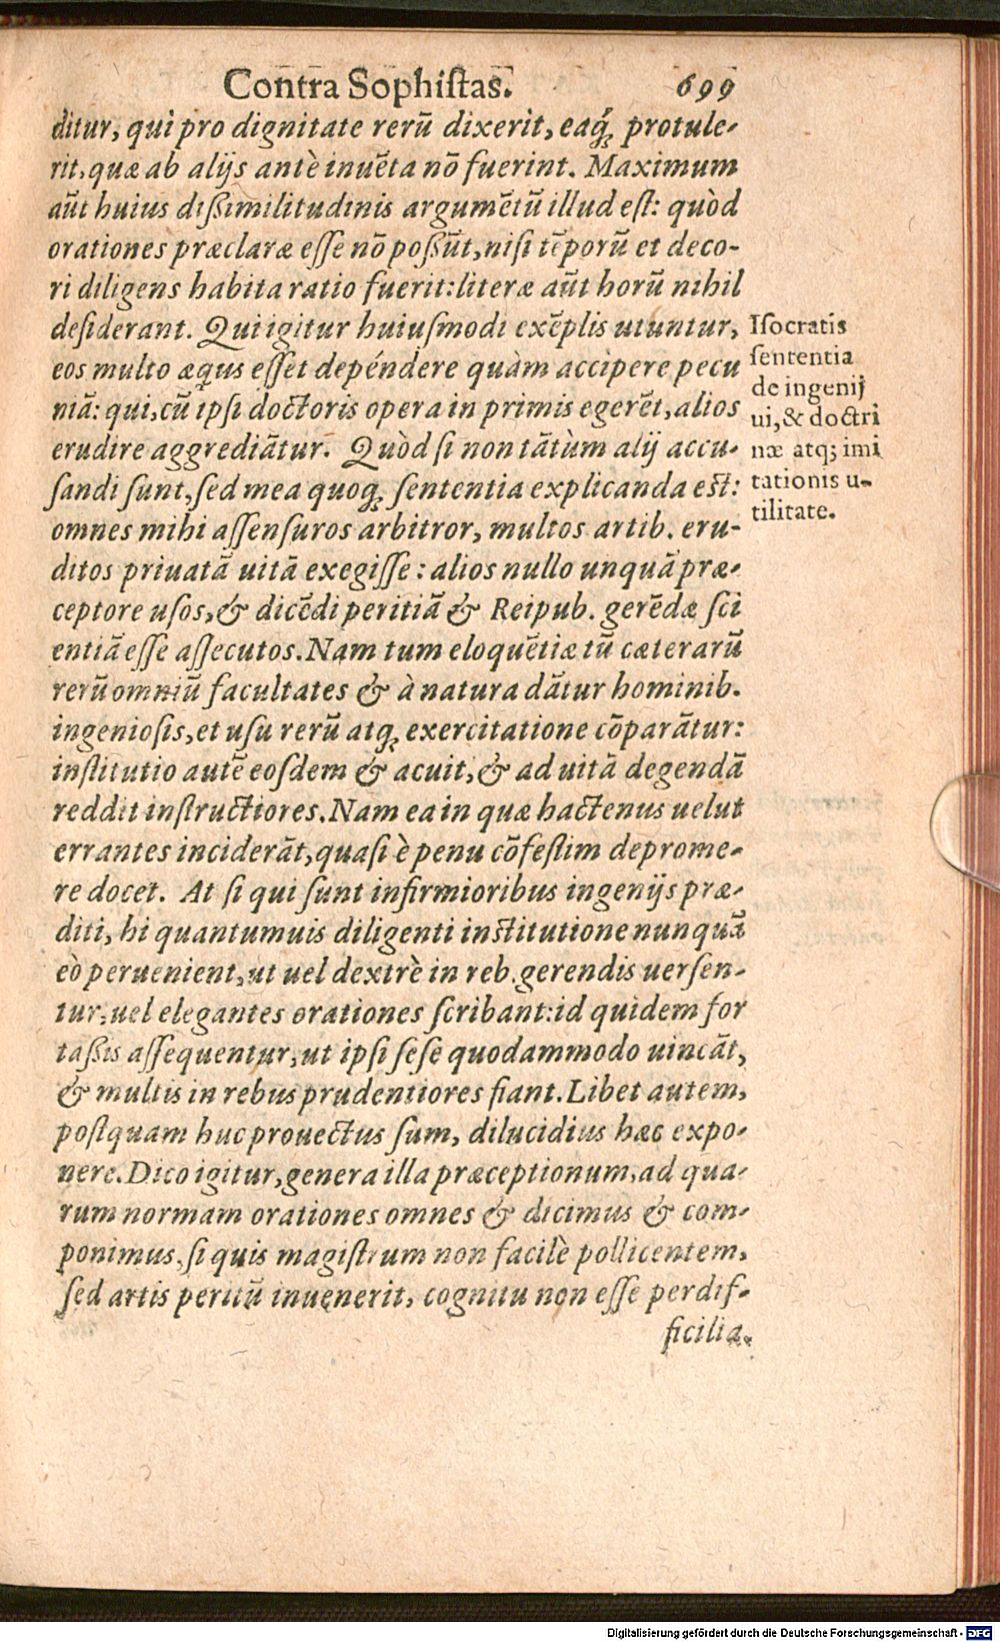 Contra Sophistas. 699
ditur, qui pro dignitate rerū dixerit, eaq́; protule-
rit, quæ ab alijs antè inuēta nō fuerint. Maximum
aūt huius dißimilitudinis argumētū illud est: quòd
orationes præclaræ esse nō poßūt, nisi tēporū et deco-
ri diligens habita ratio fuerit: literæ aūt horū nihil
desiderant. Qui igitur huiusmodi exēplis utuntur,
eos multo æqus esset depéndere quàm accipere pecu
niā: qui, cū ipsi doctoris opera in primis egerēt, alios
erudire aggrediātur. Quòd si non tātùm alij accu-
sandi sunt, sed mea quoq; sententia explicanda est:
omnes mihi assensuros arbitror, multos artib. eru-
ditos priuatā uitā exegisse: alios nullo unquā præ-
ceptore usos, & dicēdi peritiā & Reipub. gerēdæ sci
entiā esse assecutos. Nam tum eloquētiæ tū cæterarū
rerū omniū facultates & à natura dātur hominib.
ingeniosis, et usu rerū atq; exercitatione cōparātur:
institutio autē eosdem & acuit, & ad uitā degendā
reddit instructiores. Nam ea in quæ hactenus uelut
errantes inciderāt, quasi è penu cōfestim deprome-
re docet. At si qui sunt infirmioribus ingenijs præ-
diti, hi quantumuis diligenti institutione nunquā
eò peruenient, ut uel dextrè in reb. gerendis uersen-
tur, uel elegantes orationes scribant: id quidem for
taßis assequentur, ut ipsi sese quodammodo uincāt,
& multis in rebus prudentiores fiant. Libet autem,
postquam huc prouectus sum, dilucidius hæc expo-
nere. Dico igitur, genera illa præceptionum, ad qua-
rum normam orationes omnes & dicimus & com-
ponimus, si quis magistrum non facilè pollicentem,
sed artis peritū inuenerit, cognitu non esse perdif-
ficilia.
Isocratis
sententia
de ingenij
ui, & doctri
næ atq; imi
tationis u-
tilitate.
Digitalisierung gefördert durch die Deutsche Forschungsgemeinschaft - DFG